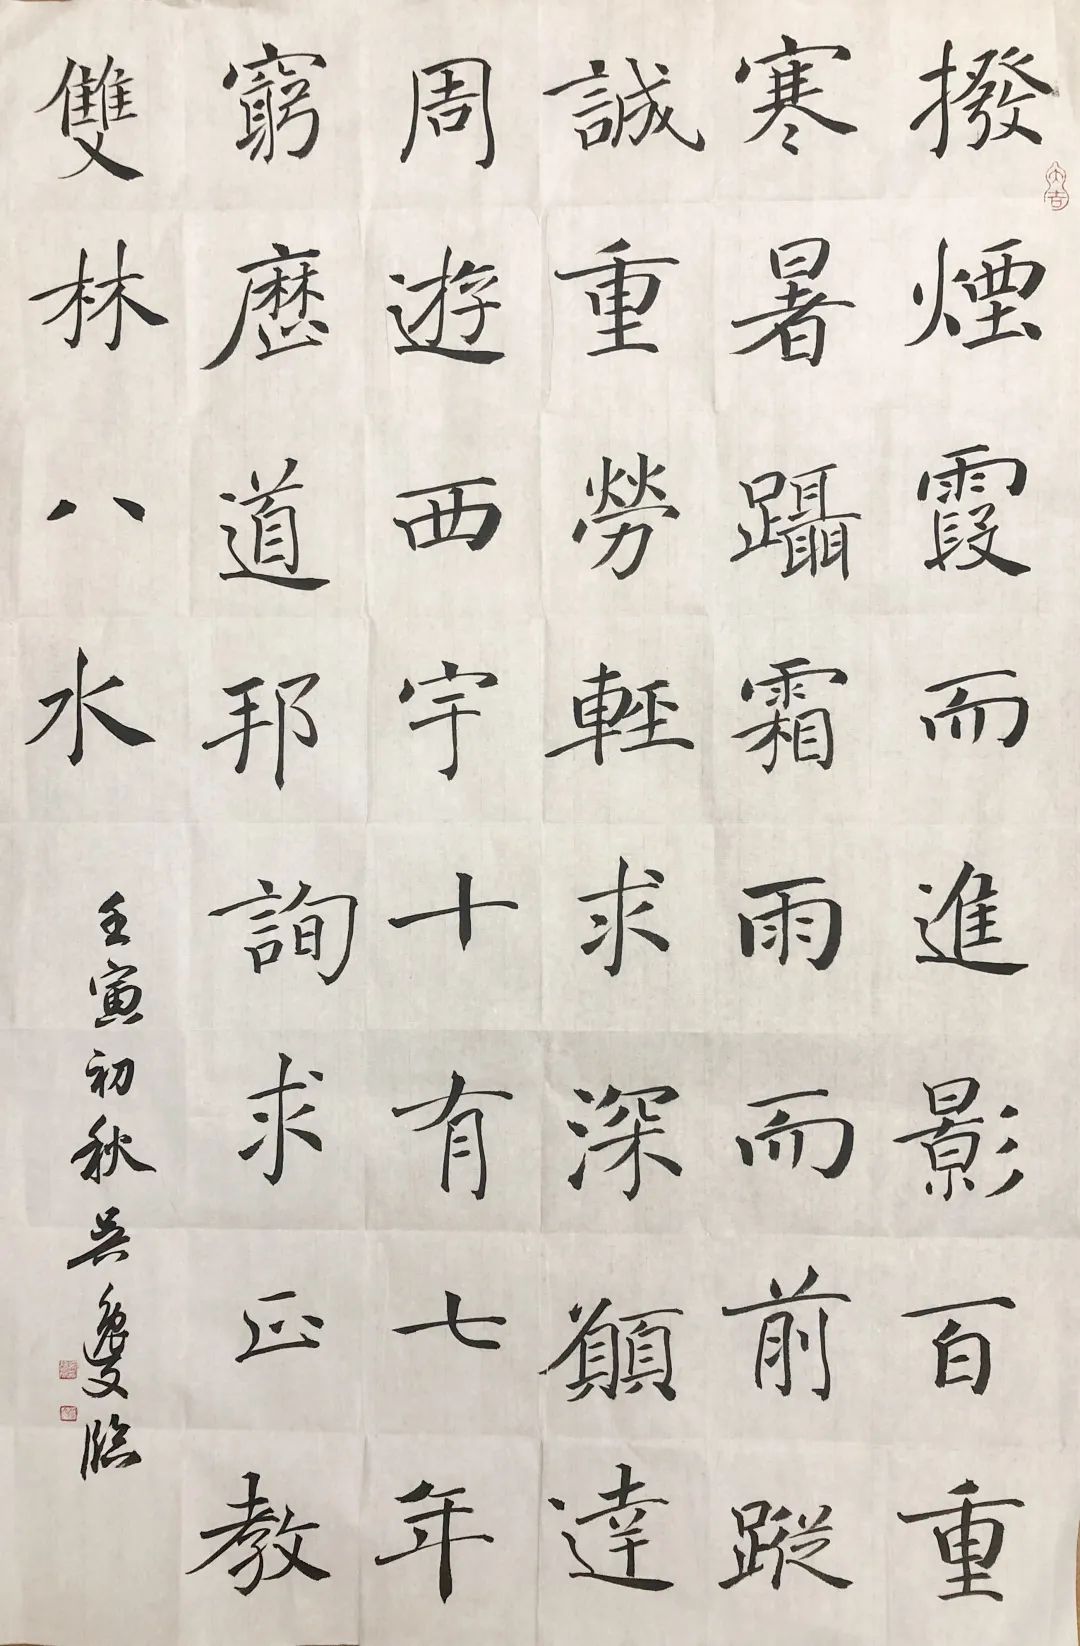 撥煙霞而進影百重
寒暑躡霜雨而前蹤
誠重勞輕求深願達
周遊西宇十有七年
窮歷道邦詢求正教
雙林八水
壬寅初秋吳 臨
大吉